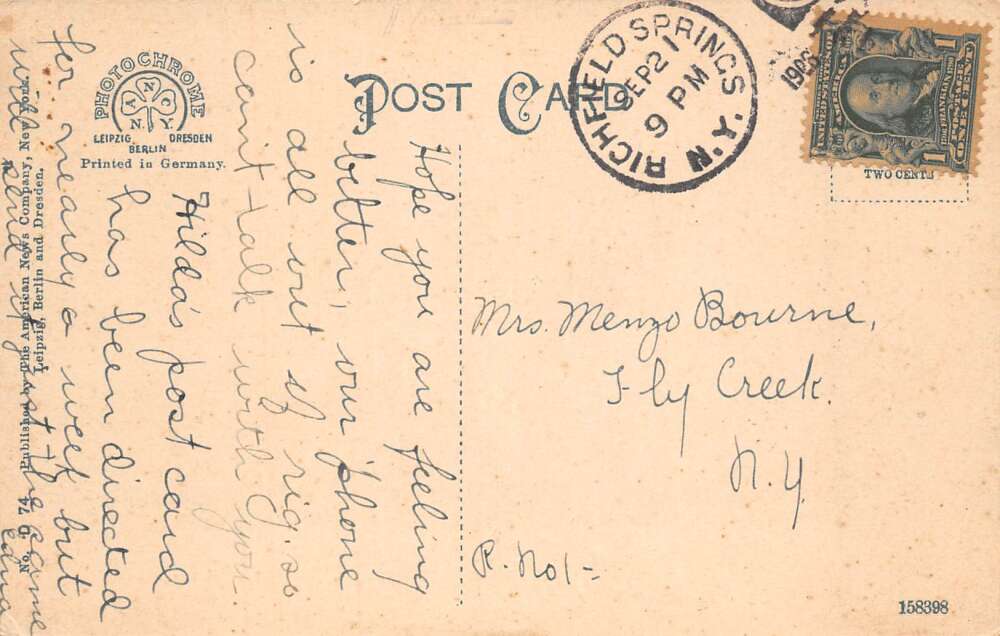 PHOTOCHROME
A N C
N. Y.
LEIPZIG DRESDEN
BERLIN
Printed in Germany.
POST CARD
RICHFIELD SPRINGS
SEP 21
9 PM
N.Y.
1908
1
1
ONE CENT
TWO CENTS
Hope you are feeling
better, our 'phone
is all out of rig. so
can't talk with you.
Hilda's post card
has been directed
for nearly a week but
will send it just the same
Edna
Mrs. Menzo Bourne,
Fly Creek.
N.Y.
R. No 1 -
No. D 74 Published by The American News Company, New York,
Leipzig, Berlin and Dresden.
158398